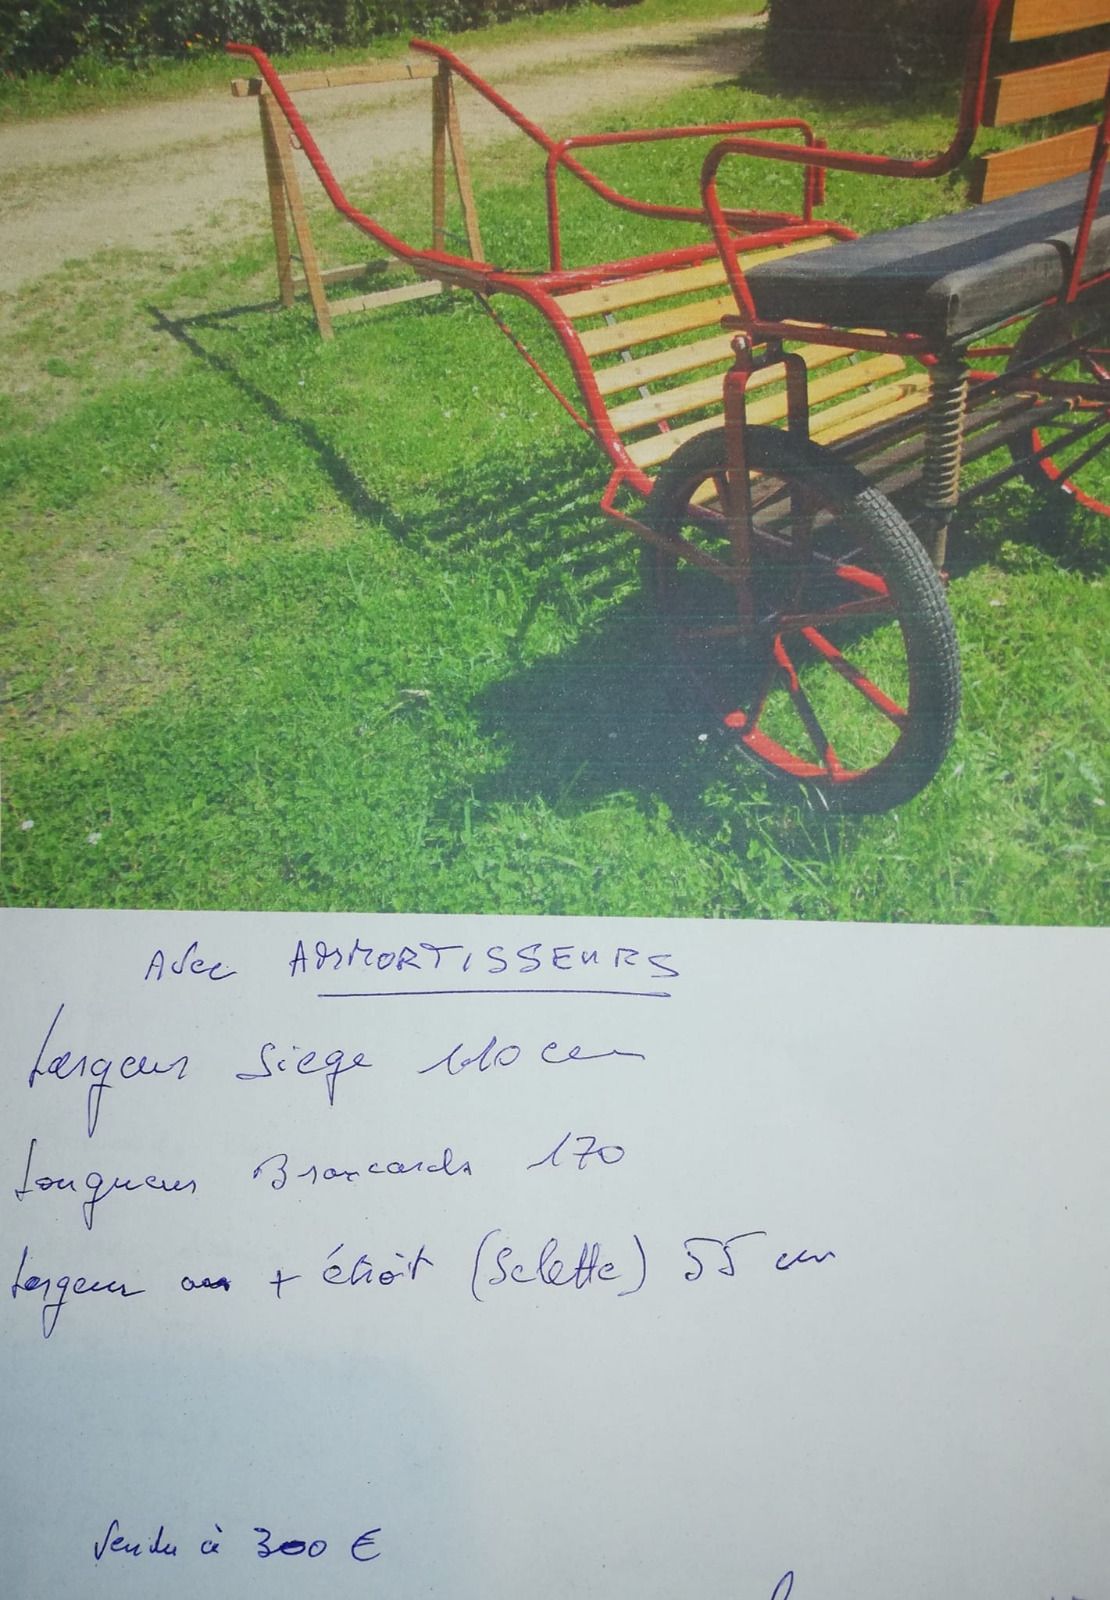 Avec AMMORTISSEURS
Largeur Siege 110 cm
Longueur Brancards 170
Largeur au + étroit (Selette) 55 cm
Vendu à 300 €